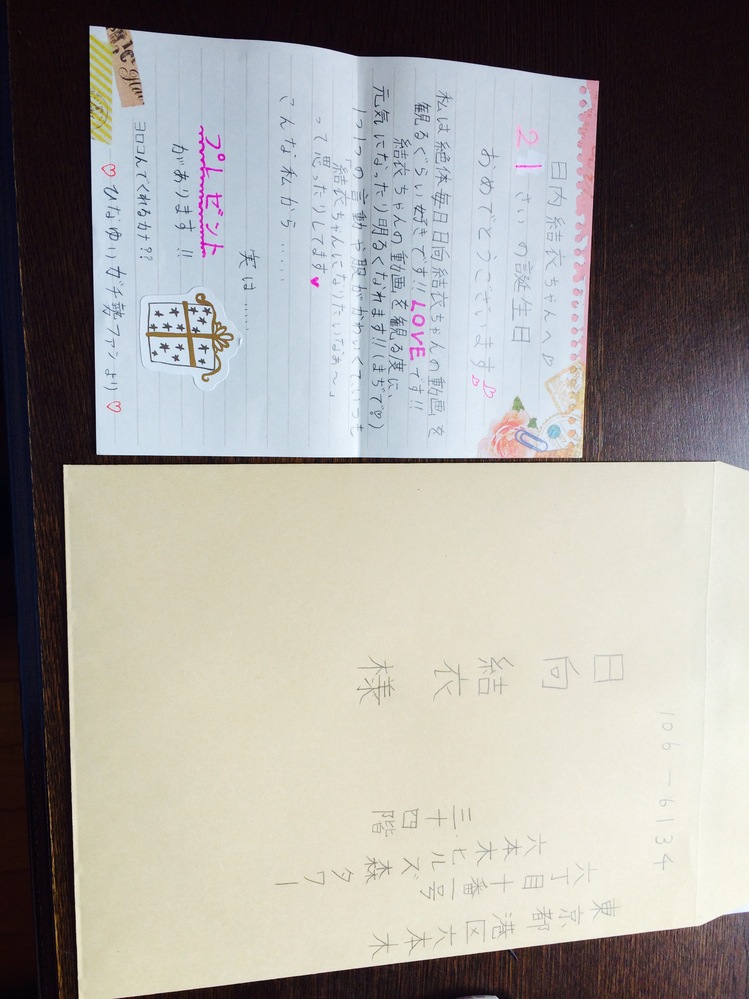 日内結衣ちゃんへ♡
21さいの誕生日
おめでとうございます♪
私は絶体毎日日向結衣ちゃんの動画を
観るぐらい好きです!!LOVEです!!
結衣ちゃんの動画を観る度に、
元気になったり明るくなれます!!(まぢで♡)
1つ1つの言動や服がかわいくていつも
「結衣ちゃんになりたいなあ〜」
って思ったりしてます♥
こんな私から.....
実は.....
プレゼント
があります!!
ヨロコんでくれるカナ??
♡ひなゆいガチ勢ファンより♡
106-6134
東京都港区六本木
六丁目十番一号
六本木ヒルズ森タワー
三十四階
日向結衣様